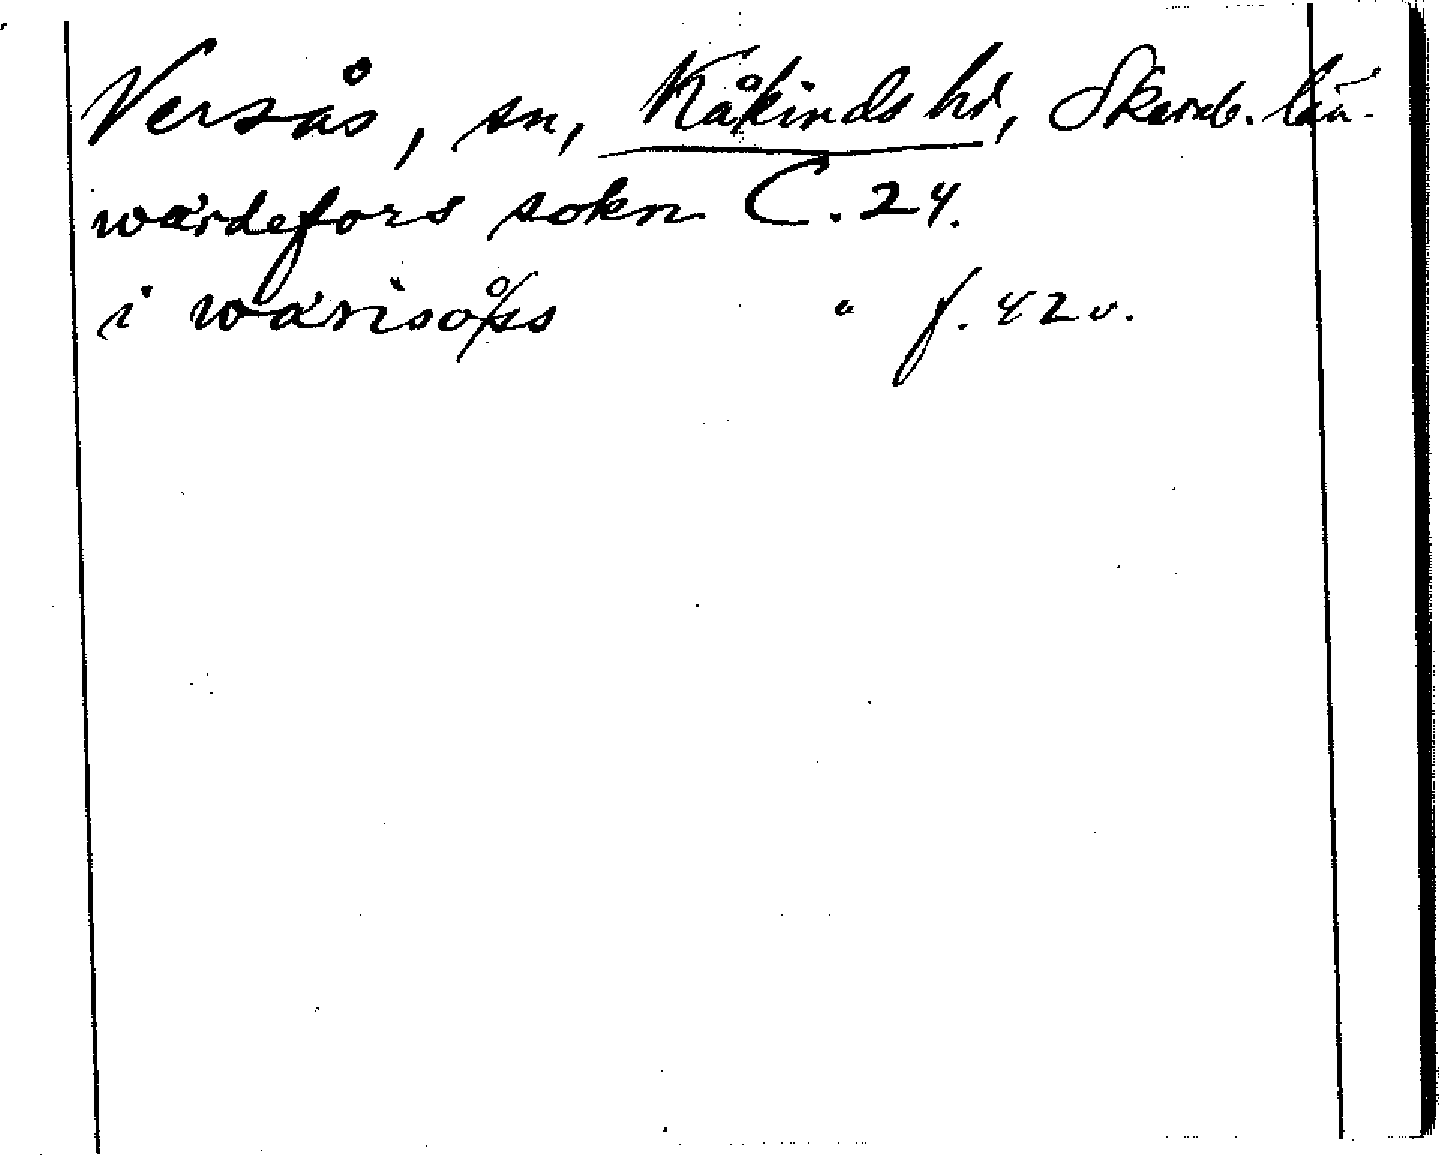 Versås, sn, Kåkinds hd, Skarab. län.
wärdefors sokn C. 24.
i wärisåss " f. 42 v.